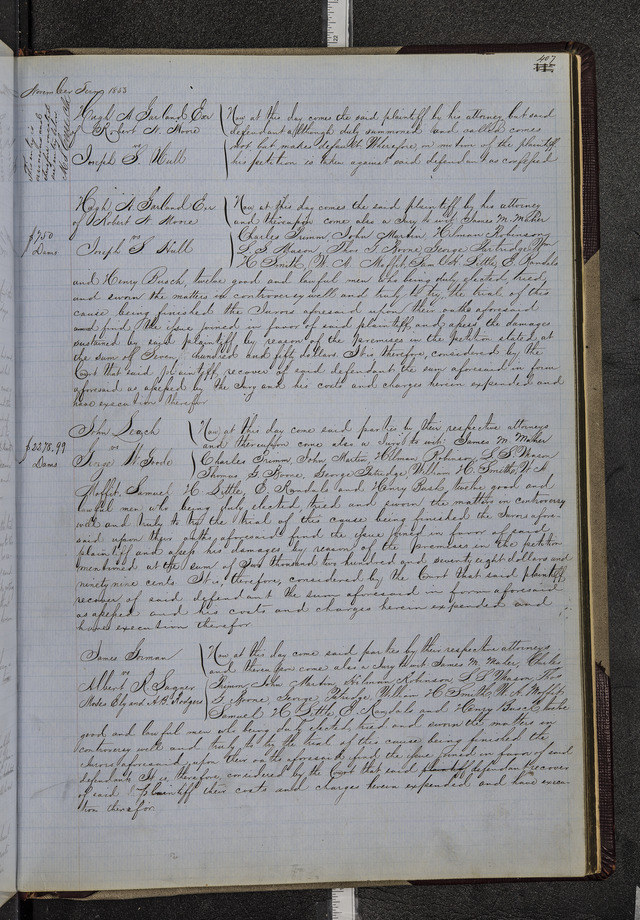 407
November Term 1853
Hugh A Garland Exr
of Robert N. Moore
vs
Joseph S Hull
Now at this day comes the said plaintiff by his attorney but said
defendant although duly summoned and called comes
not but makes default. Wherefore, on motion of the plaintiff
his petition is taken against said defendant as confessed
Hugh A. Garland Exr
of Robert N Moore
vs
Joseph S Hull
$750
Dams
Now at this day comes the said plaintiff by his attorney
and thereupon come also a Jury to wit James M. Maker
Charles Primm John Martin, Hilman Robinson
L S Mason, Thos G Boone, George Partridge Wm
H Smith, W. A. Moffit, Sam'l H. Little, E Randale
and Henry Busch, twelve good and lawful men who being duly elected, tried,
and sworn the matters in controversy well and truly to try, the trial of this
cause being finished the Jurors aforesaid upon their oaths aforesaid
find the issue joined in favor of said plaintiff, and assess the damages
sustained by said plaintiff by reason of the premises in the petition stated, at
the sum of Seven hundred and fifty dollars. It is therefore, considered by the
Court that said plaintiff, recover of said defendant the sum aforesaid in form
aforesaid as assessed by the Jury and his costs and charges herein expended and
have execution therefor
John Leach
vs
George W Goode
$2278.99
Dams
Now at this day come said parties by their respective attorneys
and thereupon come also a Jury to wit: James M Maker
Charles Primm, John Martin, Hilman Robinson L S Mason
Thomas G Boone, George Partridge William H. Smith, W. A
Moffit, Samuel H. Little, E, Randale and Henry Bush, twelve good and
lawful men who being duly elected, tried and sworn the matters in controversy
well and truly to try the trial of this cause being finished the Jurors afore-
said upon their oaths aforesaid find the issue joined in favor of said
plaintiff and assess his damages by reason of the premises in the petition
mentioned at the sum of Two thousand two hundred and seventy eight dollars and
ninety nine cents It is, therefore, considered by the Court that said plaintiff,
recover of said defendant the sum aforesaid in form aforesaid
as assessed and his costs and charges herein expended and
have execution therefor
James Gorman
vs
Albert R Sagger
Moses Ely and A. B. Hodges
Now at this day come said parties by their respective attorneys
and thereupon come also a Jury to wit James M. Maker, Charles
Primm, John Martin, Hilman Robinson, L S Mason Thos
G Boone, George Partridge William H. Smith, W. A. Moffit,
Samuel H. Little E Randale and Henry Busch, twelve
good and lawful men who being duly elected, tried and sworn the matters in
controversy well and truly to try the trial of this cause being finished, the
Jurors aforesaid upon their oaths aforesaid find the issue joined in favor of said
defendant It is therefore, considered by the Court that said defendant recover
of said plaintiff their costs and charges herein expended and have execu
tion therefor